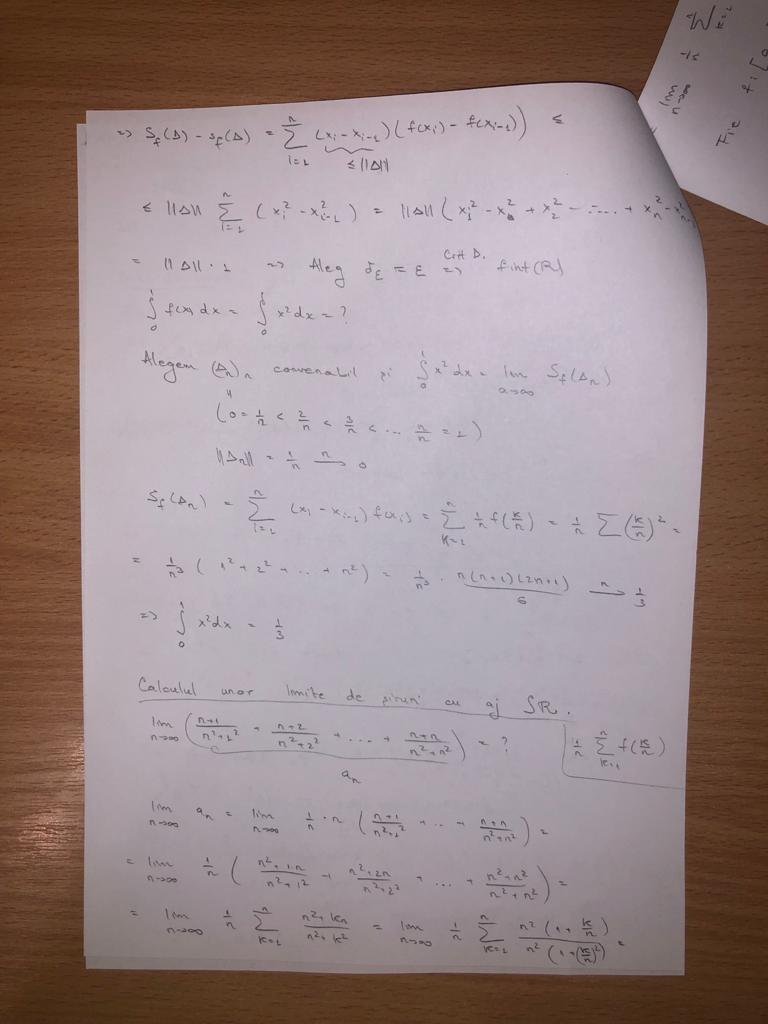 => S_f(Δ) - s_f(Δ) = Σ_{i=1}^{n} (x_i - x_{i-1})(f(x_i) - f(x_{i-1})) ≤
≤ ||Δ||
≤ ||Δ|| Σ_{i=1}^{n} (x_i^2 - x_{i-1}^2) = ||Δ|| (x_1^2 - x_0^2 + x_2^2 - ..... + x_n^2 - x_{n-1}^2
= ||Δ|| · 1 => Aleg δ_ε = ε =>^{Crit D.} f int (R)
∫_0^1 f(x) dx = ∫_0^1 x^2 dx = ?
Alegem (Δ_n)_n convenabil și ∫_0^1 x^2 dx = lim_{n→∞} S_f(Δ_n)
(0 = 1/n < 2/n < 3/n < ... n/n = 1)
||Δ_n|| = 1/n →^n 0
S_f(Δ_n) = Σ_{i=1}^{n} (x_i - x_{i-1}) f(x_i) = Σ_{k=1}^{n} 1/n f(k/n) = 1/n Σ (k/n)^2 =
= 1/n^3 (1^2 + 2^2 + ... + n^2) = 1/n^3 · n(n+1)(2n+1)/6 →^n 1/3
=> ∫_0^1 x^2 dx = 1/3
Calculul unor limite de șiruri cu aj SR.
lim_{n→∞} ((n+1)/(n^2+1^2) + (n+2)/(n^2+2^2) + .... + (n+n)/(n^2+n^2)) = ?
a_n
1/n Σ_{k=1}^{n} f(k/n)
lim_{n→∞} a_n = lim_{n→∞} 1/n · n ((n+1)/(n^2+1^2) + ... + (n+n)/(n^2+n^2)) =
= lim_{n→∞} 1/n ((n^2+1n)/(n^2+1^2) + (n^2+2n)/(n^2+2^2) + ... + (n^2+n^2)/(n^2+n^2)) =
= lim_{n→∞} 1/n Σ_{k=1}^{n} (n^2+kn)/(n^2+k^2) = lim_{n→∞} 1/n Σ_{k=1}^{n} n^2(1+k/n)/(n^2(1+(k/n)^2)) =
lim_{n→∞} 1/n Σ_{k=1}
Fie f: [0